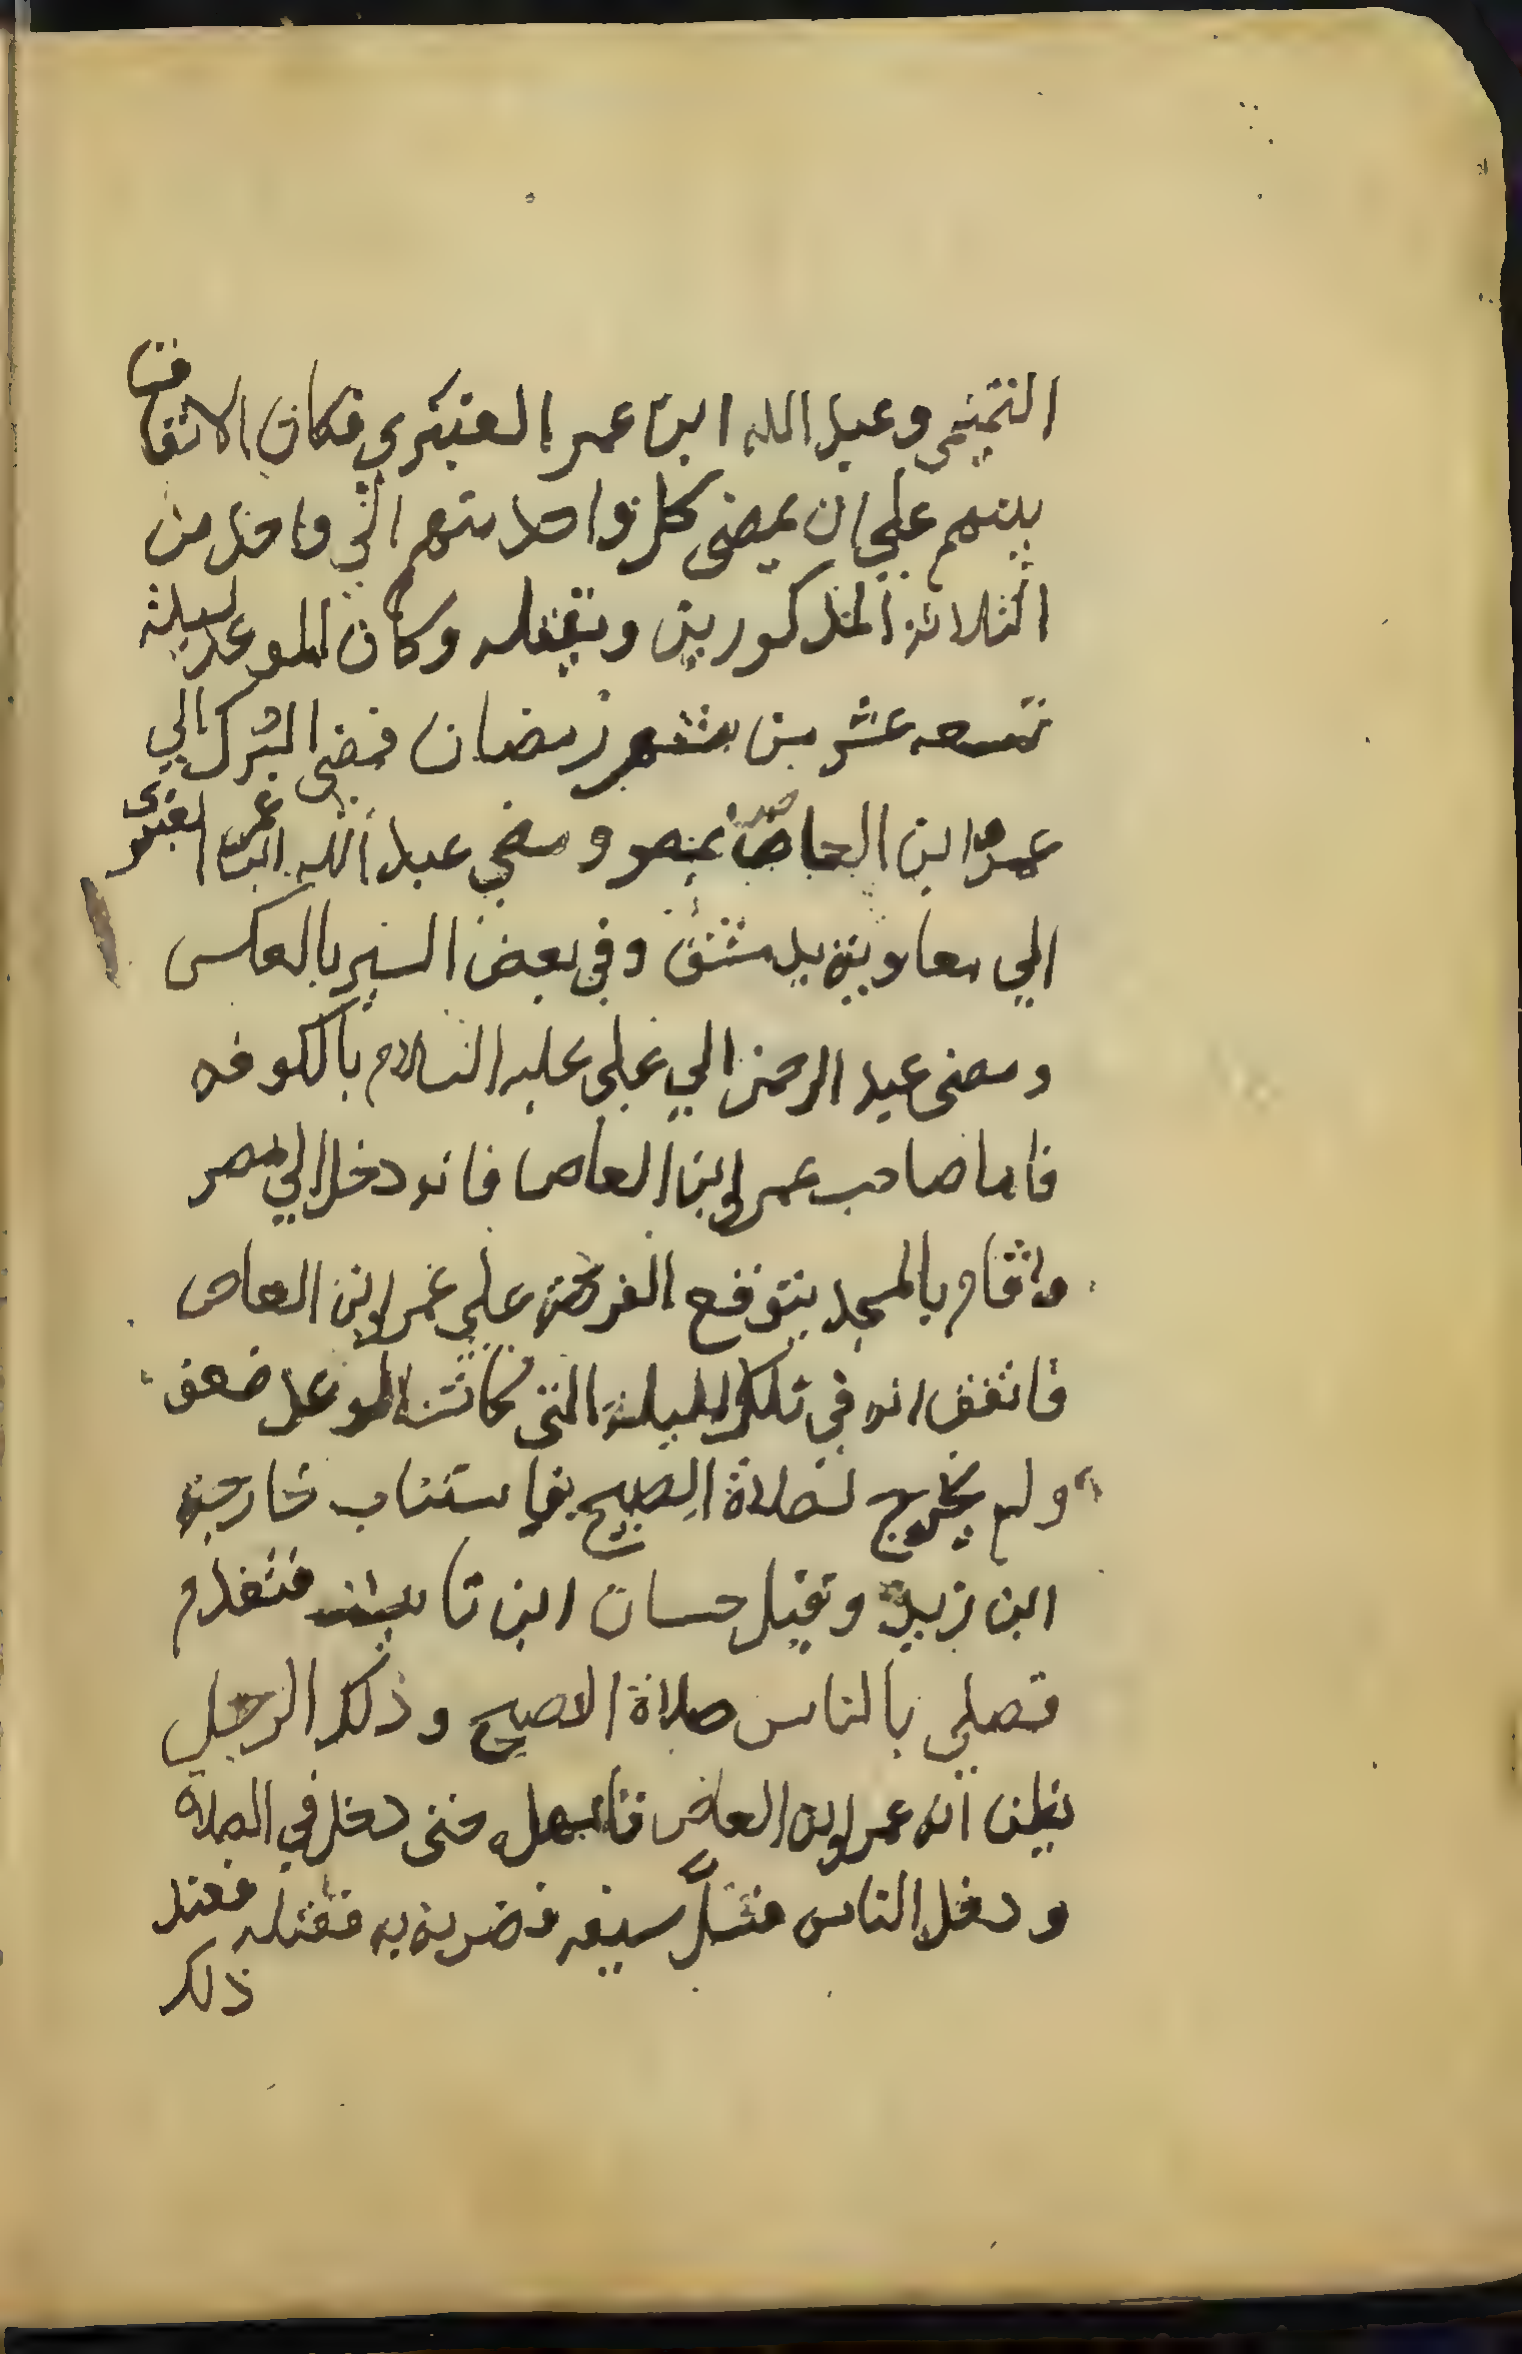 التميمي وعبد الله ابن عمر العنبري فكان الاتفاق
بينهم علي ان يمضى كل واحد منهم الي واحد من
الثلاثة المذكورين ويقتله وكان الموعد ليلة
تسعه عشر من شهر رمضان فمضى البرك الي
عمرو ابن العاص بمصر ومضي عبد الله ابن عمر العنبري
الي معاوية بدمشق وفي بعض السير بالعكس
ومضى عبد الرحمن الي علي عليه السلام بالكوفه
فاما صاحب عمرو ابن العاص فانه دخل الي مصر
واقام بالمسجد يتوقع الفرصة علي عمرو ابن العاص
فاتفق انه في تلك الليلة التي كانت الموعد ضعف
ولم يخرج لصلاة الصبح فاستناب خارجة
ابن زيد وقيل حسان ابن ثابت فتقدم
فصلي بالناس صلاة الصبح وذلك الرجل
يظن انه عمرو ابن العاص فامهله حتى دخل في الصلاه
ودخل الناس فسلَّ سيفه فضربه به فقتله فعند
ذلك